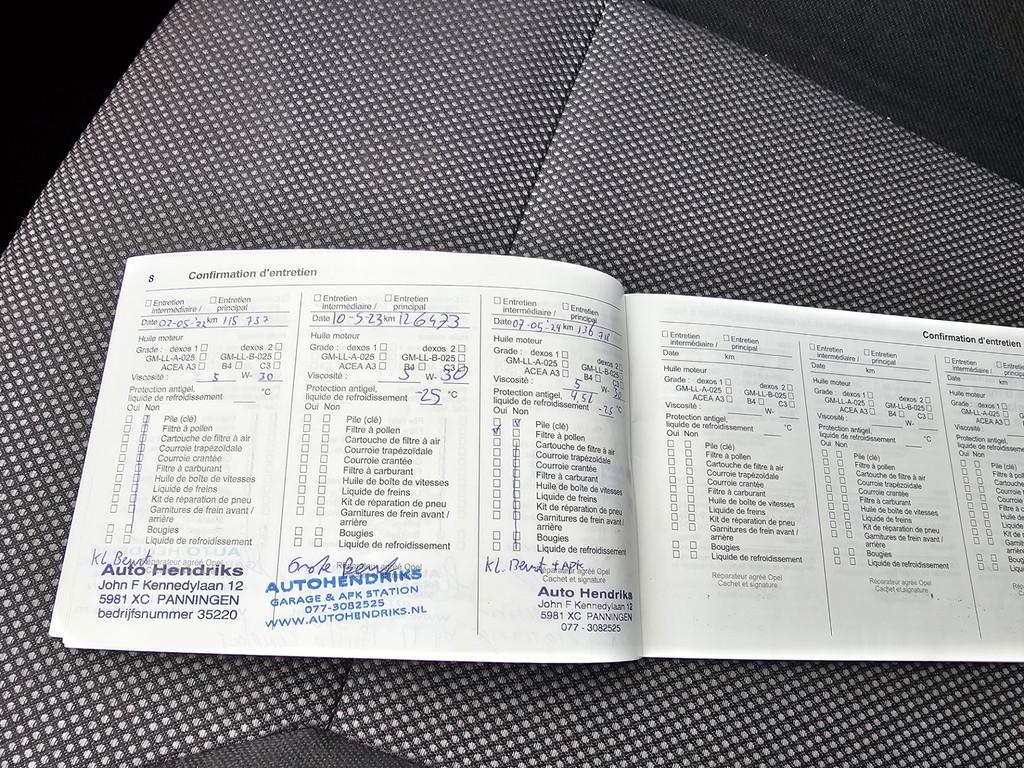 8 Confirmation d'entretien
☐ Entretien intermédiaire / ☐ Entretien principal
Date 02-05-'22 km 115 737
Huile moteur
Grade : dexos 1 ☐ dexos 2 ☐
GM-LL-A-025 ☐ GM-LL-B-025 ☐
ACEA A3 ☐ B4 ☐ C3 ☐
Viscosité : 5 W- 30
Protection antigel,
liquide de refroidissement °C
Oui Non
Pile (clé)
Filtre à pollen
Cartouche de filtre à air
Courroie trapézoïdale
Courroie crantée
Filtre à carburant
Huile de boîte de vitesses
Liquide de freins
Kit de réparation de pneu
Garnitures de frein avant /
arrière
Bougies
Liquide de refroidissement
KL Beurt
Auto Hendriks
John F Kennedylaan 12
5981 XC PANNINGEN
bedrijfsnummer 35220
☐ Entretien intermédiaire / ☐ Entretien principal
Date 10-5-23 km 126473
Huile moteur
Grade : dexos 1 ☐ dexos 2 ☐
GM-LL-A-025 ☐ GM-LL-B-025 ☐
ACEA A3 ☐ B4 ☐ C3 ☐
Viscosité : 5 W- 30
Protection antigel,
liquide de refroidissement -25 °C
Oui Non
Pile (clé)
Filtre à pollen
Cartouche de filtre à air
Courroie trapézoïdale
Courroie crantée
Filtre à carburant
Huile de boîte de vitesses
Liquide de freins
Kit de réparation de pneu
Garnitures de frein avant /
arrière
Bougies
Liquide de refroidissement
Grote Beurt
AUTOHENDRIKS
GARAGE & APK STATION
077-3082525
WWW.AUTOHENDRIKS.NL
☐ Entretien intermédiaire / ☐ Entretien principal
Date 07-05-'24 km 136
Huile moteur
Grade : dexos 1 ☐ dexos 2 ☐
GM-LL-A-025 ☐ GM-LL-B-025 ☐
ACEA A3 ☐ B4 ☐ C3 ☐
Viscosité : 5 W- 30
Protection antigel, 4,5L
liquide de refroidissement -25 °C
Oui Non
Pile (clé)
Filtre à pollen
Cartouche de filtre à air
Courroie trapézoïdale
Courroie crantée
Filtre à carburant
Huile de boîte de vitesses
Liquide de freins
Kit de réparation de pneu
Garnitures de frein avant /
arrière
Bougies
Liquide de refroidissement
KL. Beurt + APK
Réparateur agréé Opel
Cachet et signature
Auto Hendriks
John F Kennedylaan 12
5981 XC PANNINGEN
077 - 3082525
Confirmation d'entretien
☐ Entretien intermédiaire / ☐ Entretien principal
Date km
Huile moteur
Grade : dexos 1 ☐ dexos 2 ☐
GM-LL-A-025 ☐ GM-LL-B-025 ☐
ACEA A3 ☐ B4 ☐ C3 ☐
Viscosité : W-
Protection antigel,
liquide de refroidissement °C
Oui Non
Pile (clé)
Filtre à pollen
Cartouche de filtre à air
Courroie trapézoïdale
Courroie crantée
Filtre à carburant
Huile de boîte de vitesses
Liquide de freins
Kit de réparation de pneu
Garnitures de frein avant /
arrière
Bougies
Liquide de refroidissement
Réparateur agréé Opel
Cachet et signature
☐ Entretien intermédiaire / ☐ Entretien principal
Date km
Huile moteur
Grade : dexos 1 ☐ dexos 2 ☐
GM-LL-A-025 ☐ GM-LL-B-025 ☐
ACEA A3 ☐ B4 ☐ C3 ☐
Viscosité : W-
Protection antigel,
liquide de refroidissement °C
Oui Non
Pile (clé)
Filtre à pollen
Cartouche de filtre à air
Courroie trapézoïdale
Courroie crantée
Filtre à carburant
Huile de boîte de vitesses
Liquide de freins
Kit de réparation de pneu
Garnitures de frein avant /
arrière
Bougies
Liquide de refroidissement
Réparateur agréé Opel
Cachet et signature
☐ Entretien intermédiaire /
Date km
Huile moteur
Grade : dexos 1
GM-LL-A-025 ☐
ACEA A3
Viscosité :
Protection antigel,
liquide de refroidissement
Oui Non
Pile (clé)
Filtre à
Cartouche
Courroie
Courroie
Filtre à
Huile de
Liquide
Kit de
Garnitures
arrière
Bougies
Liquide